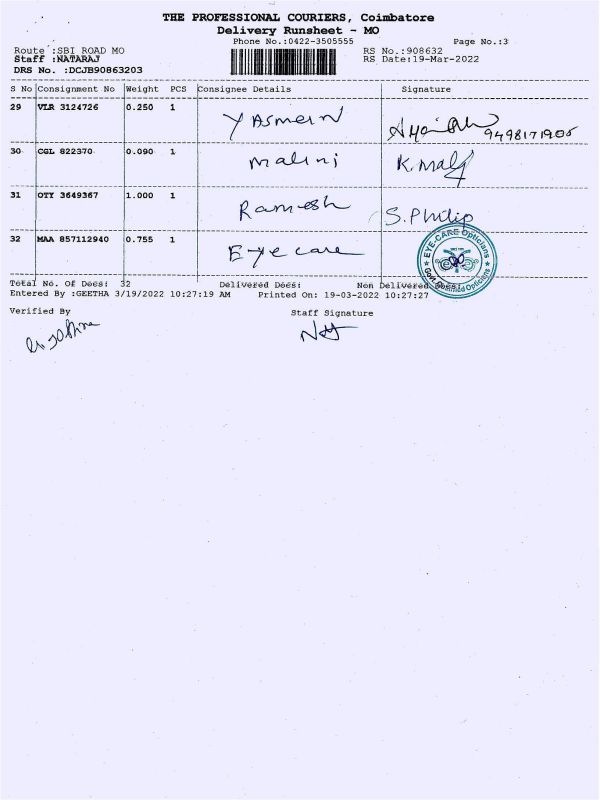 THE PROFESSIONAL COURIERS, Coimbatore
Delivery Runsheet - MO
Phone No.:0422-3505555 Page No.:3
Route :SBI ROAD MO RS No.:908632
Staff :NATARAJ RS Date:19-Mar-2022
DRS No. :DCJB90863203
S No Consignment No Weight PCS Consignee Details Signature
29 VLR 3124726 0.250 1 YASMEIN
9498171905
30 CGL 822370 0.090 1 Malini K. Malf
31 OTY 3649367 1.000 1 Ramesh S. Philip
32 MAA 857112940 0.755 1 Eye care
EYE-CARE Opticians
Total No. Of Docs: 32 Delivered Docs: Non Delivered Docs:
Entered By :GEETHA 3/19/2022 10:27:19 AM Printed On: 19-03-2022 10:27:27
Verified By Staff Signature